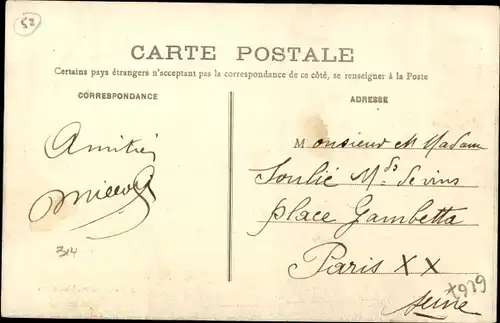 52
CARTE POSTALE
Certains pays étrangers n'acceptant pas la correspondance de ce côté, se renseigner à la Poste
CORRESPONDANCE
Amitiés
314
ADRESSE
Monsieur M Madame
Soulié Mds de vins
place Gambetta
Paris XX
Seine